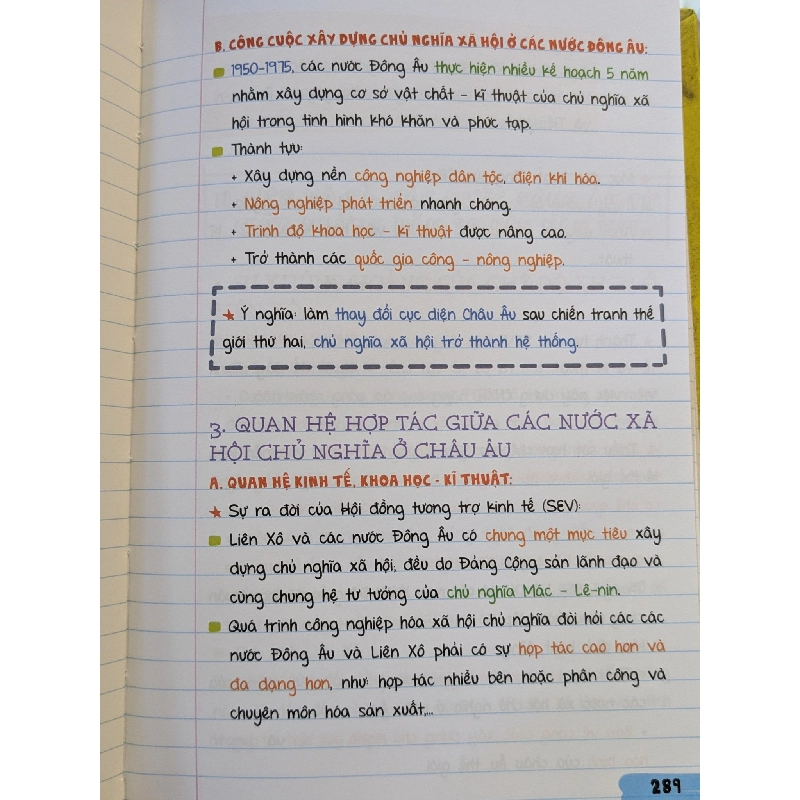 B. CÔNG CUỘC XÂY DỰNG CHỦ NGHĨA XÃ HỘI Ở CÁC NƯỚC ĐÔNG ÂU:
1950-1975, các nước Đông Âu thực hiện nhiều kế hoạch 5 năm
nhằm xây dựng cơ sở vật chất - kĩ thuật của chủ nghĩa xã
hội trong tình hình khó khăn và phức tạp.
Thành tựu:
+ Xây dựng nền công nghiệp dân tộc, điện khí hóa.
+ Nông nghiệp phát triển nhanh chóng.
+ Trình độ khoa học - kĩ thuật được nâng cao.
+ Trở thành các quốc gia công - nông nghiệp.
★ Ý nghĩa: làm thay đổi cục diện Châu Âu sau chiến tranh thế
giới thứ hai, chủ nghĩa xã hội trở thành hệ thống.
3. QUAN HỆ HỢP TÁC GIỮA CÁC NƯỚC XÃ
HỘI CHỦ NGHĨA Ở CHÂU ÂU
A. QUAN HỆ KINH TẾ, KHOA HỌC - KĨ THUẬT:
★ Sự ra đời của Hội đồng tương trợ kinh tế (SEV):
Liên Xô và các nước Đông Âu có chung một mục tiêu xây
dựng chủ nghĩa xã hội, đều do Đảng Cộng sản lãnh đạo và
cùng chung hệ tư tưởng của chủ nghĩa Mác - Lê-nin.
Quá trình công nghiệp hóa xã hội chủ nghĩa đòi hỏi các các
nước Đông Âu và Liên Xô phải có sự hợp tác cao hơn và
đa dạng hơn, như: hợp tác nhiều bên hoặc phân công và
chuyên môn hóa sản xuất,...
289